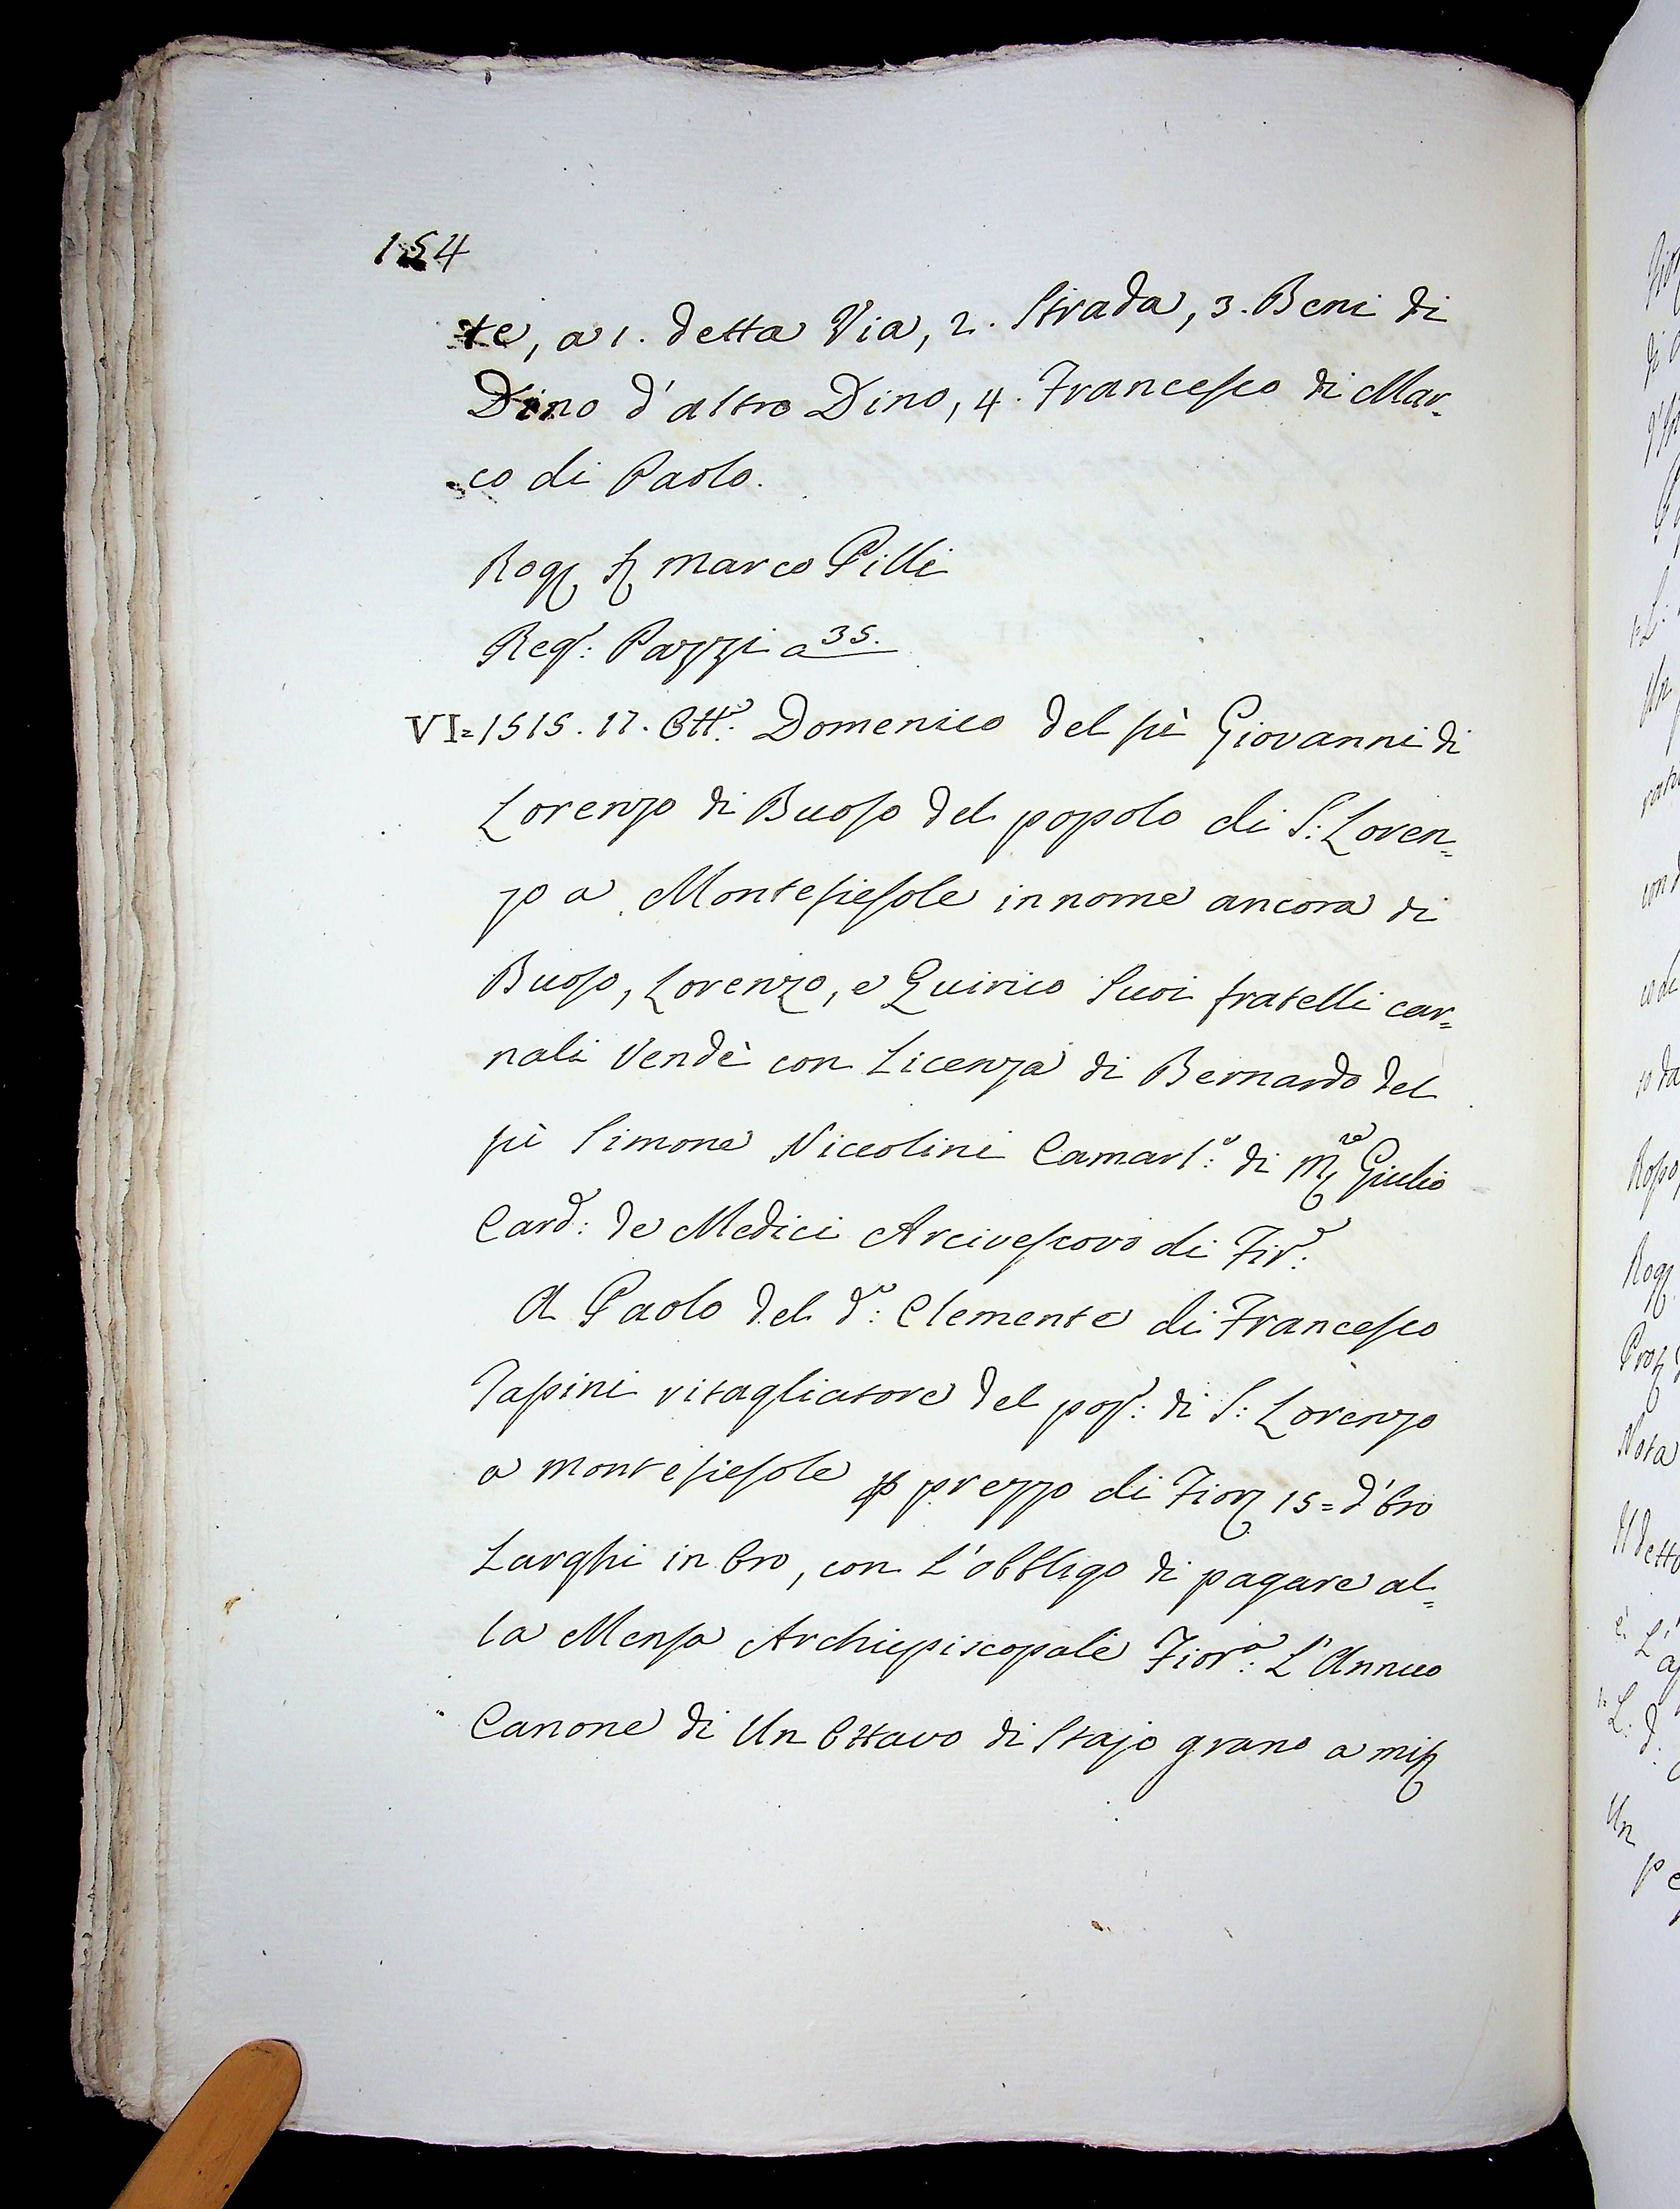 154
te, a 1. detta Via, 2. Strada, 3. Beni di
Dino d'altro Dino, 4. Francesco di Mar-
co di Paolo.
Rog. Ser Marco Pilli
Reg.º: Pazzi a 35.
VI= 1515. 17. Ott.e: Domenico del fù Giovanni di
Lorenzo di Buoso del popolo di S: Loren=
zo a Montefiesole in nome ancora di
Buoso, Lorenzo, e Quirico Suoi fratelli car=
nali Vendè con Licenza di Bernardo del
fù Simone Niccolini Camarl.º: di M.re Giulio
Card.: de Medici Arcivescovo di Fir.e:
A Paolo del d.º: Clemente di Francesco
Tassini ritagliatore del pop.º: di S: Lorenzo
a Montefiesole p prezzo di Fior 15= d'Oro
Larghi in Oro, con L'obbligo di pagare al=
la Mensa Archiepiscopale Fior.a: L'Annuo
Canone di Un Ottavo di Stajo grano a mis